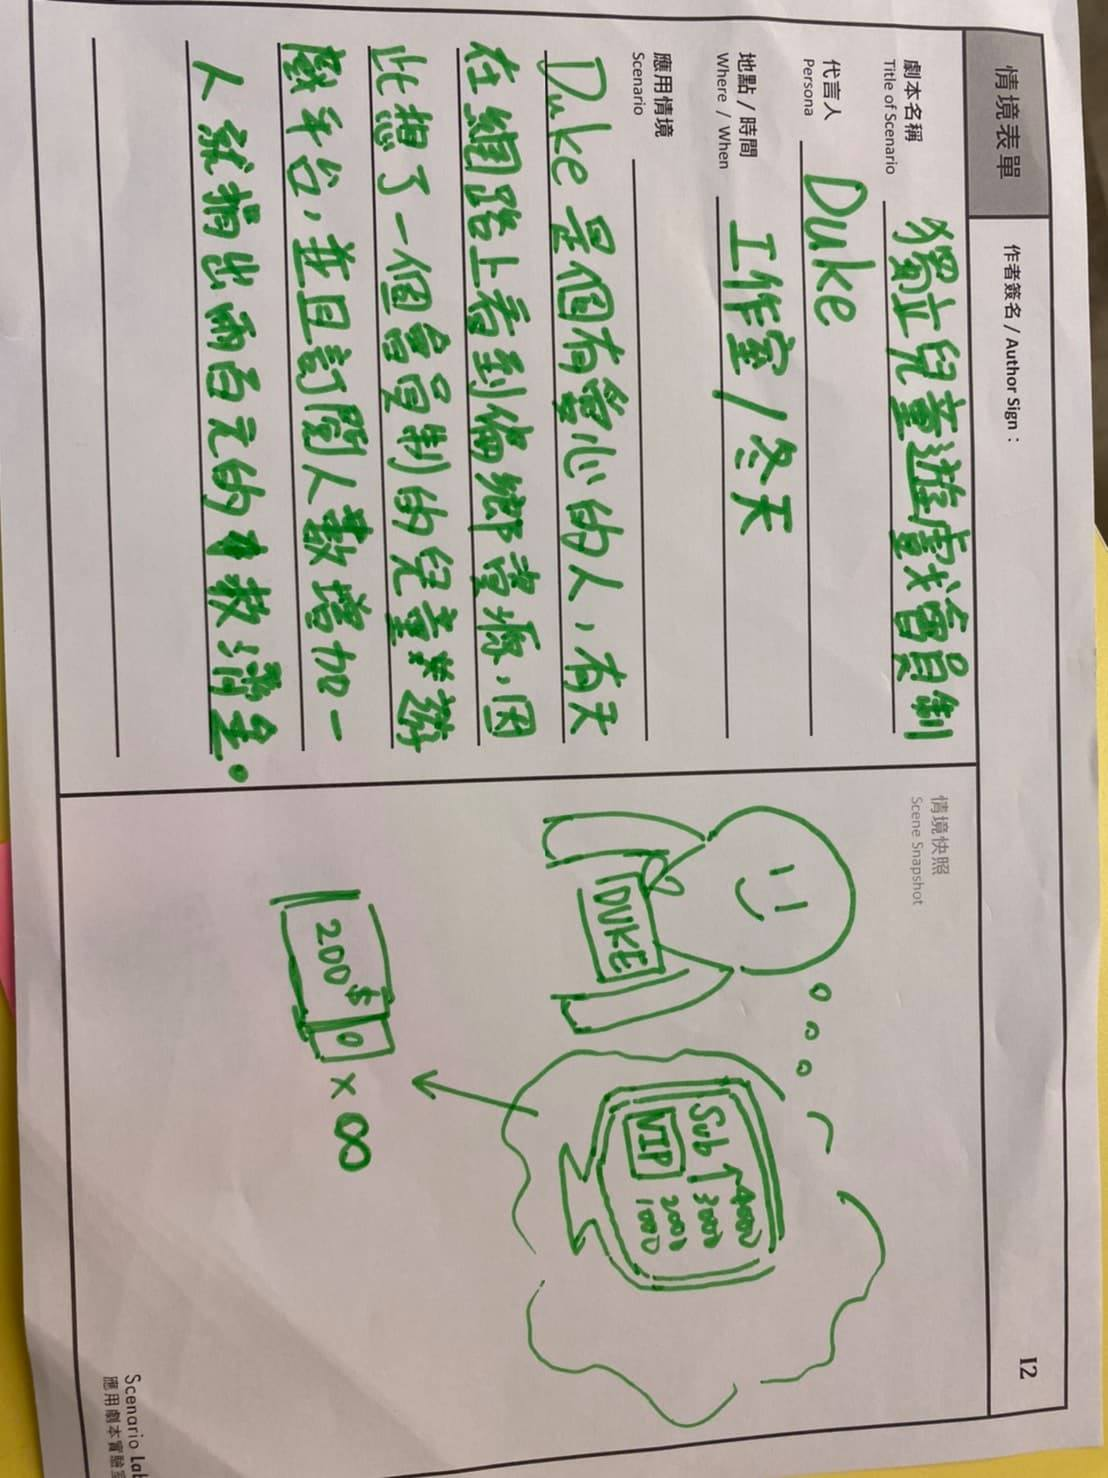 情境表單
作者簽名 / Author Sign :
I2
劇本名稱
Title of Scenario
獨立兒童遊戲會員制
代言人
Persona
Duke
地點 / 時間
Where / When
工作室 / 冬天
應用情境
Scenario
Duke 是個有愛心的人,有天
在網路上看到偏鄉資源,因
此想了一個會員制的兒童遊
戲平台,並且訂閱人數增加一
人就捐出兩百元的救濟金。
情境快照
Scene Snapshot
DUKE
Sub
VIP
400
300
200
100
200$
0
× ∞
Scenario Lab
應用劇本實驗室